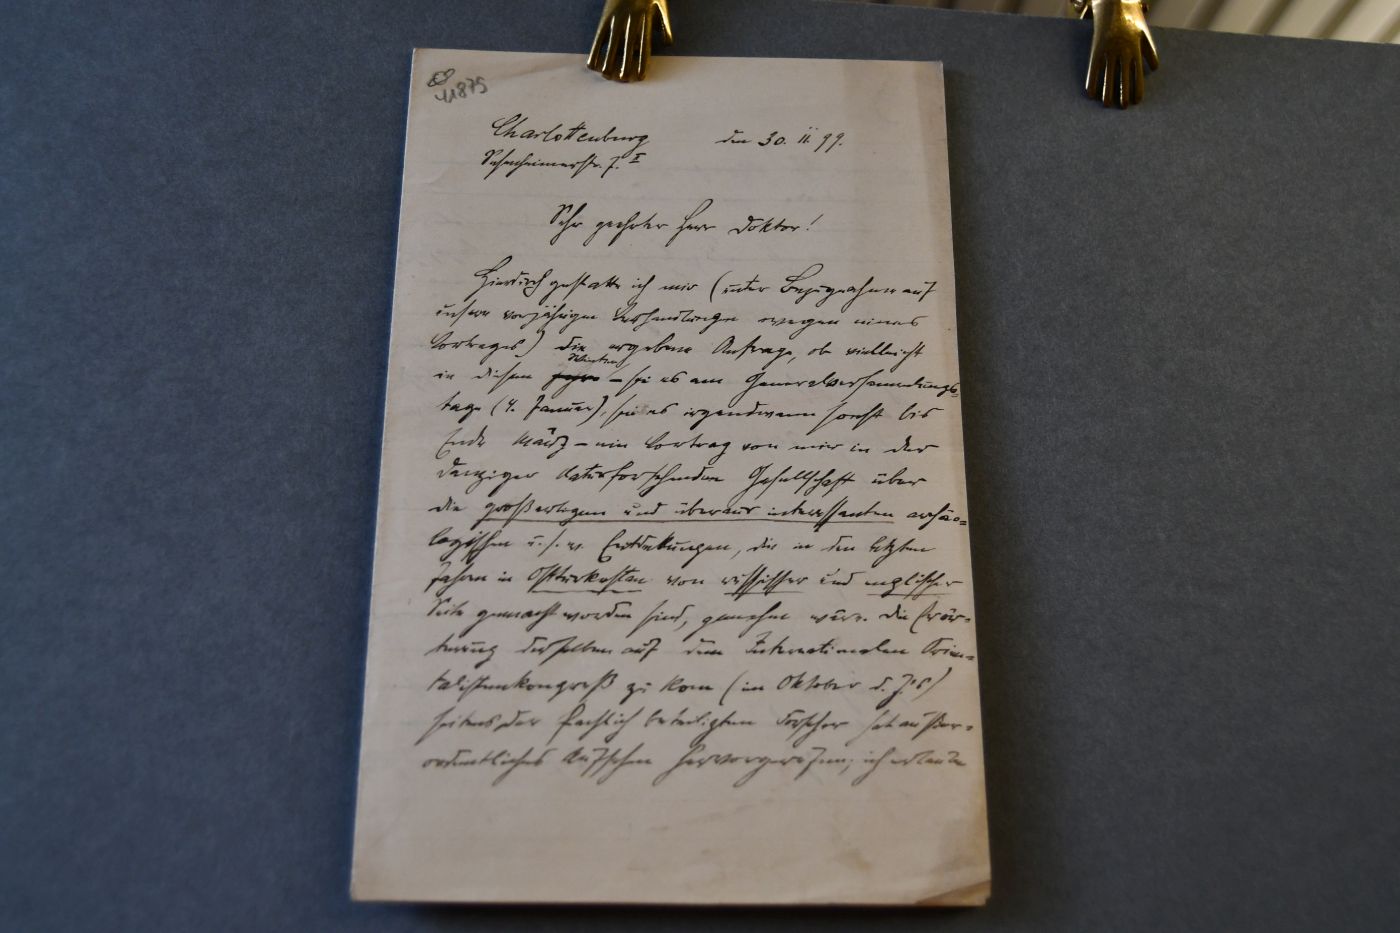 11875
Charlottenburg den 30. 11. 99.
Sesenheimerstr. 7. I
Sehr geehrter Herr Doktor!
Hierdurch gestatte ich mir (unter Bezugnahme auf
unsere vorjährigen Verhandlungen wegen eines
Vortrages) die ergebene Anfrage, ob vielleicht
in diesem Winter – sei es am Generalversammlungs-
tage (4. Januar), sei es irgendwann sonst bis
Ende März – ein Vortrag von mir in der
Danziger Naturforschenden Gesellschaft über
die großartigen und überaus interessanten archäo-
logischen u. s. w. Entdekungen, die in den letzten
Jahren in Ostturkestan von russischer und englischer
Seite gemacht worden sind, genehm wäre. Die Erör-
terung derselben auf dem Internationalen Orien-
talistenkongreß zu Rom (im Oktober d. J's)
seitens der fachlich beteiligten Forscher hat außer-
ordentliches Aufsehen hervorgerufen; ich erlaube